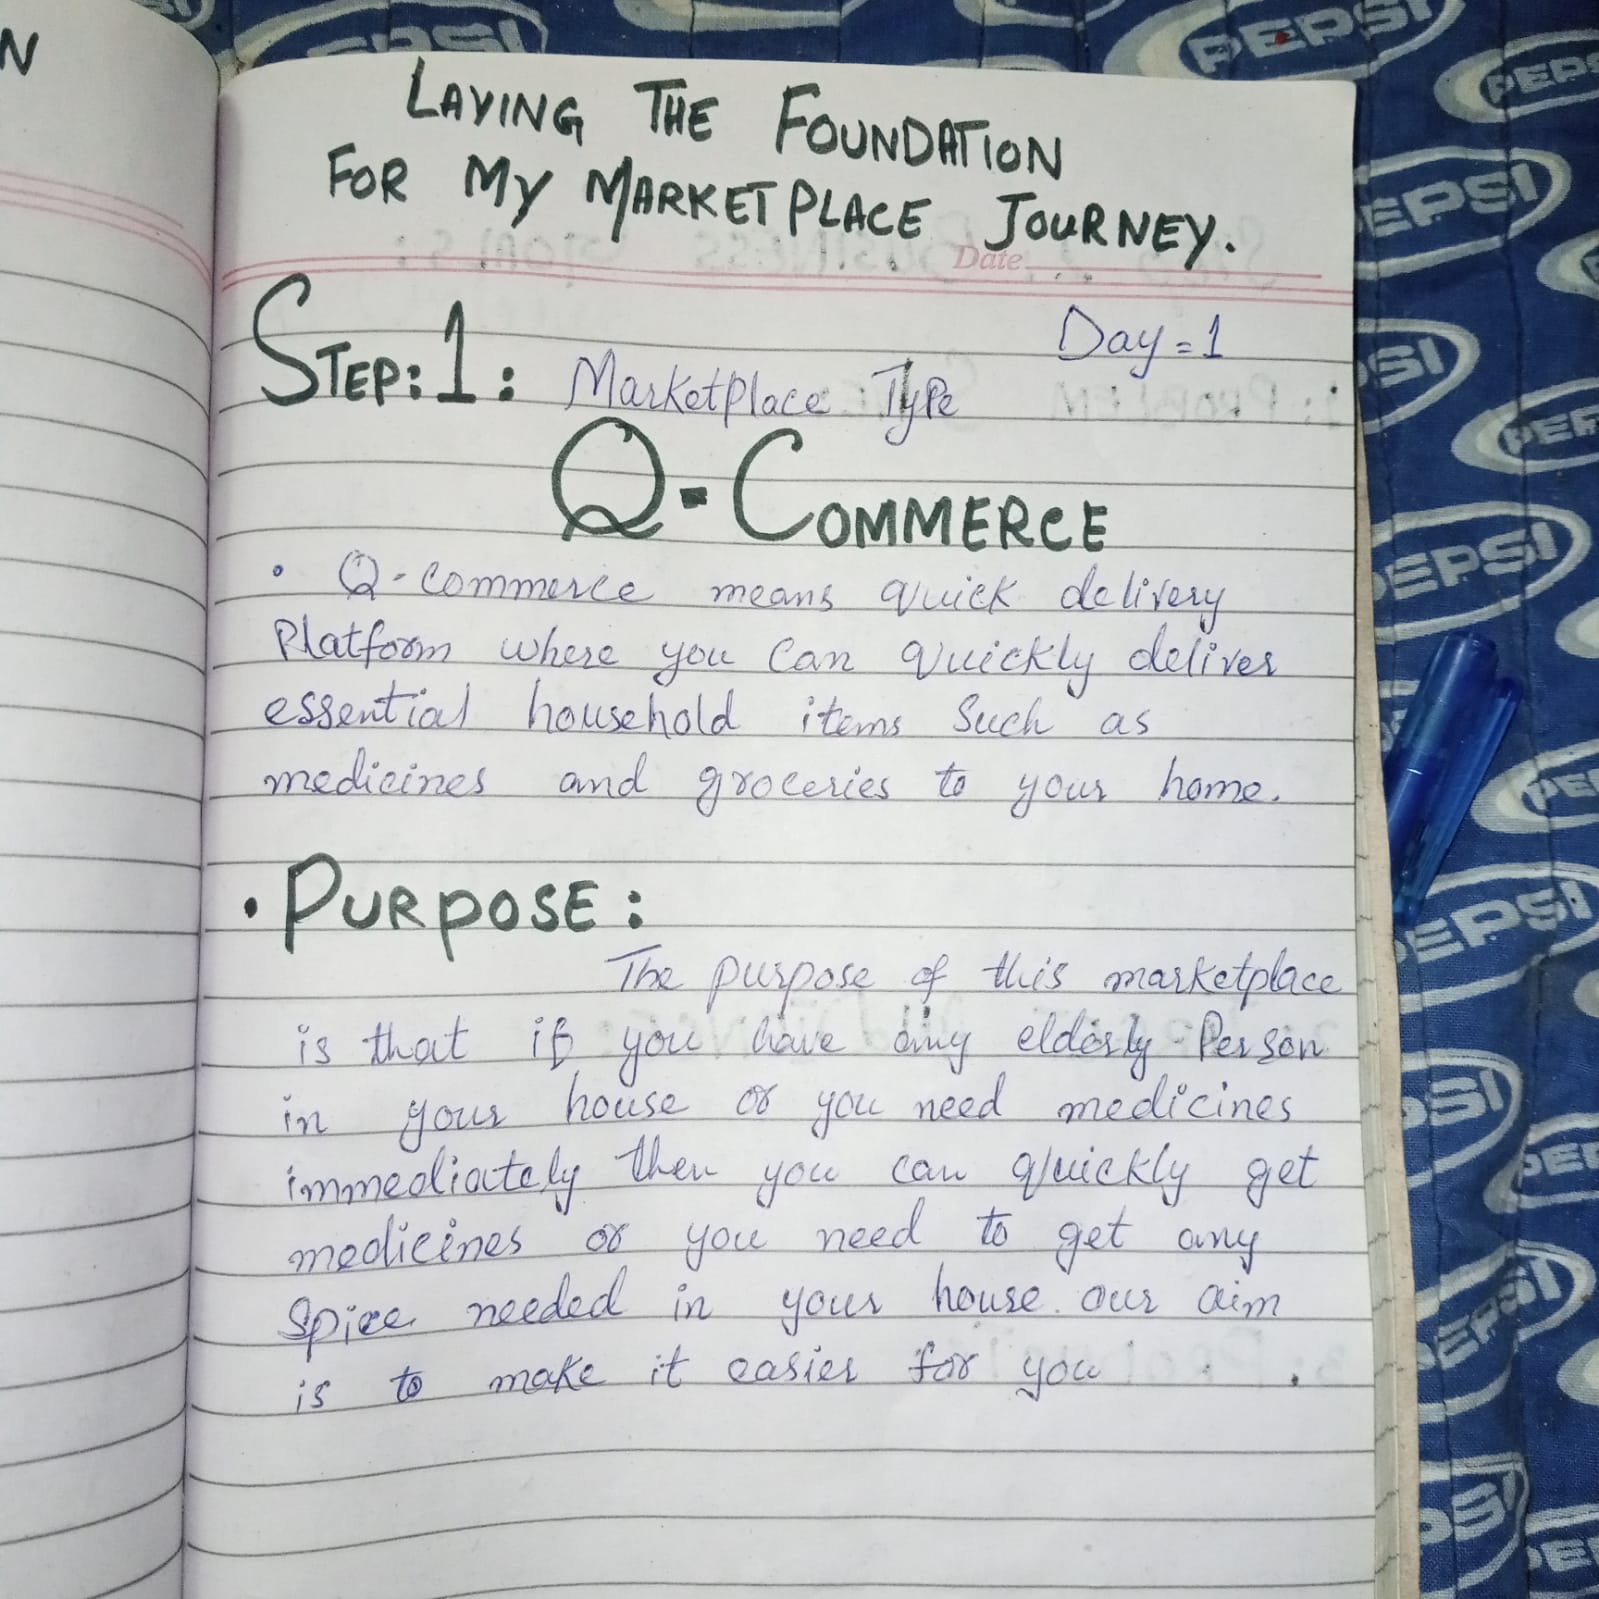 N
LAYING THE FOUNDATION
FOR MY MARKETPLACE JOURNEY.
Date
Day = 1
STEP: 1: Marketplace Type
Q-COMMERCE
• Q-commerce means quick delivery
Platform where you can quickly deliver
essential household items such as
medicines and groceries to your home.
• PURPOSE:
The purpose of this marketplace
is that if you have any elderly Person
in your house or you need medicines
immediately then you can quickly get
medicines or you need to get any
Spice needed in your house. our aim
is to make it easier for you .
PEPSI
PEPSI
PEPSI
PEPSI
PEPSI
PEPSI
PEPSI